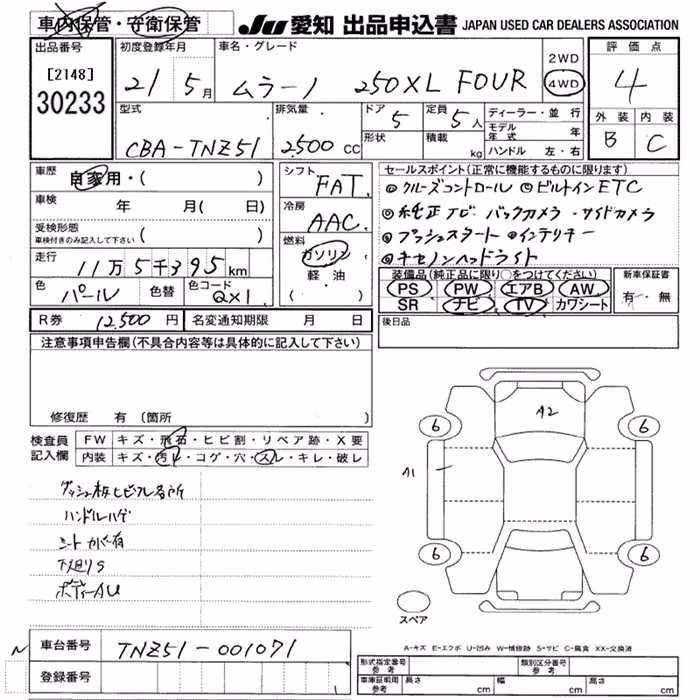 車内保管・守衛保管
JU 愛知 出品申込書 JAPAN USED CAR DEALERS ASSOCIATION
出品番号 初度登録年月 車名・グレード 評価点
[2148]
30233
21 5月 ムラーノ 250XL FOUR 2WD 4WD 4
型式 排気量 ドア 定員 ディーラー・並行 外装 内装
CBA-TNZ51 2500cc 5 5人 モデル年式 年 B C
形状 積載 kg ハンドル 左・右
車歴 自家用・( ) シフト FAT セールスポイント(正常に機能するものに限ります)
◎クルーズコントロール ◎ビルトインETC
車検 年 月( 日) 冷房 AAC
◎純正ナビ バックカメラ・サイドカメラ
受検形態 車検付きのみ記入して下さい ( )
◎プッシュスタート ◎インテリキー
走行 11万5千395km 燃料 ガソリン 軽油 ( ・ )
◎キセノンヘッドライト
色 パール 色替 色コード QX1
装備品(純正品に限り○をつけてください) 新車保証書
PS PW エアB AW 有・無
SR ナビ TV カワシート
R券 12,500円 名変通知期限 月 日
後日品
注意事項申告欄(不具合内容等は具体的に記入して下さい)
修復歴 有 (箇所
検査員記入欄 FW キズ・飛石・ヒビ割・リペア跡・X要
内装 キズ・汚レ・コゲ・穴・スレ・キレ・破レ
A2
6 6
A1
6 6
ハンドルハゲ
シートカバー有
下廻りS
ボディーAU
スペア
A-キズ E-エクボ U-凹み W-補修跡 S-サビ C-腐食 XX-交換済
N 車台番号 TNZ51-001071
登録番号
形式指定番号 参考 類別区分番号 参考
車庫証明用 参考 長さ cm 幅 cm 高さ cm